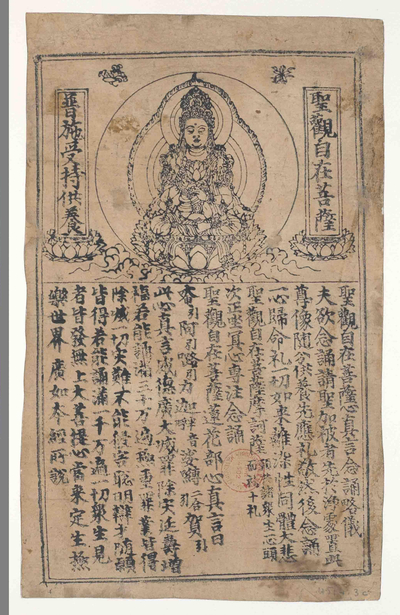 聖觀自在菩薩
普施受持供養
聖觀自在菩薩心真言念誦略儀
夫欲念誦請聖加被者先於淨處置此
尊像隨分供養先應礼敬然後念誦
一心歸命礼一切如來離染性同體大悲
聖觀自在菩薩摩訶薩 願共諸衆生一心頭面礼 十礼
次正坐冥心專注念誦
聖觀自在菩薩蓮花部心真言曰
唵引阿引嚕力迦半音娑嚩二合賀引
此心真言威德廣大滅罪除灾延壽增
福若能誦滿三十万遍極重罪業皆得
除滅一切灾難不能侵害聡明辯才隨願
皆得若能誦滿一千万遍一切衆生見
者皆發無上大菩提心當來定生極
樂世界 廣如本經所說